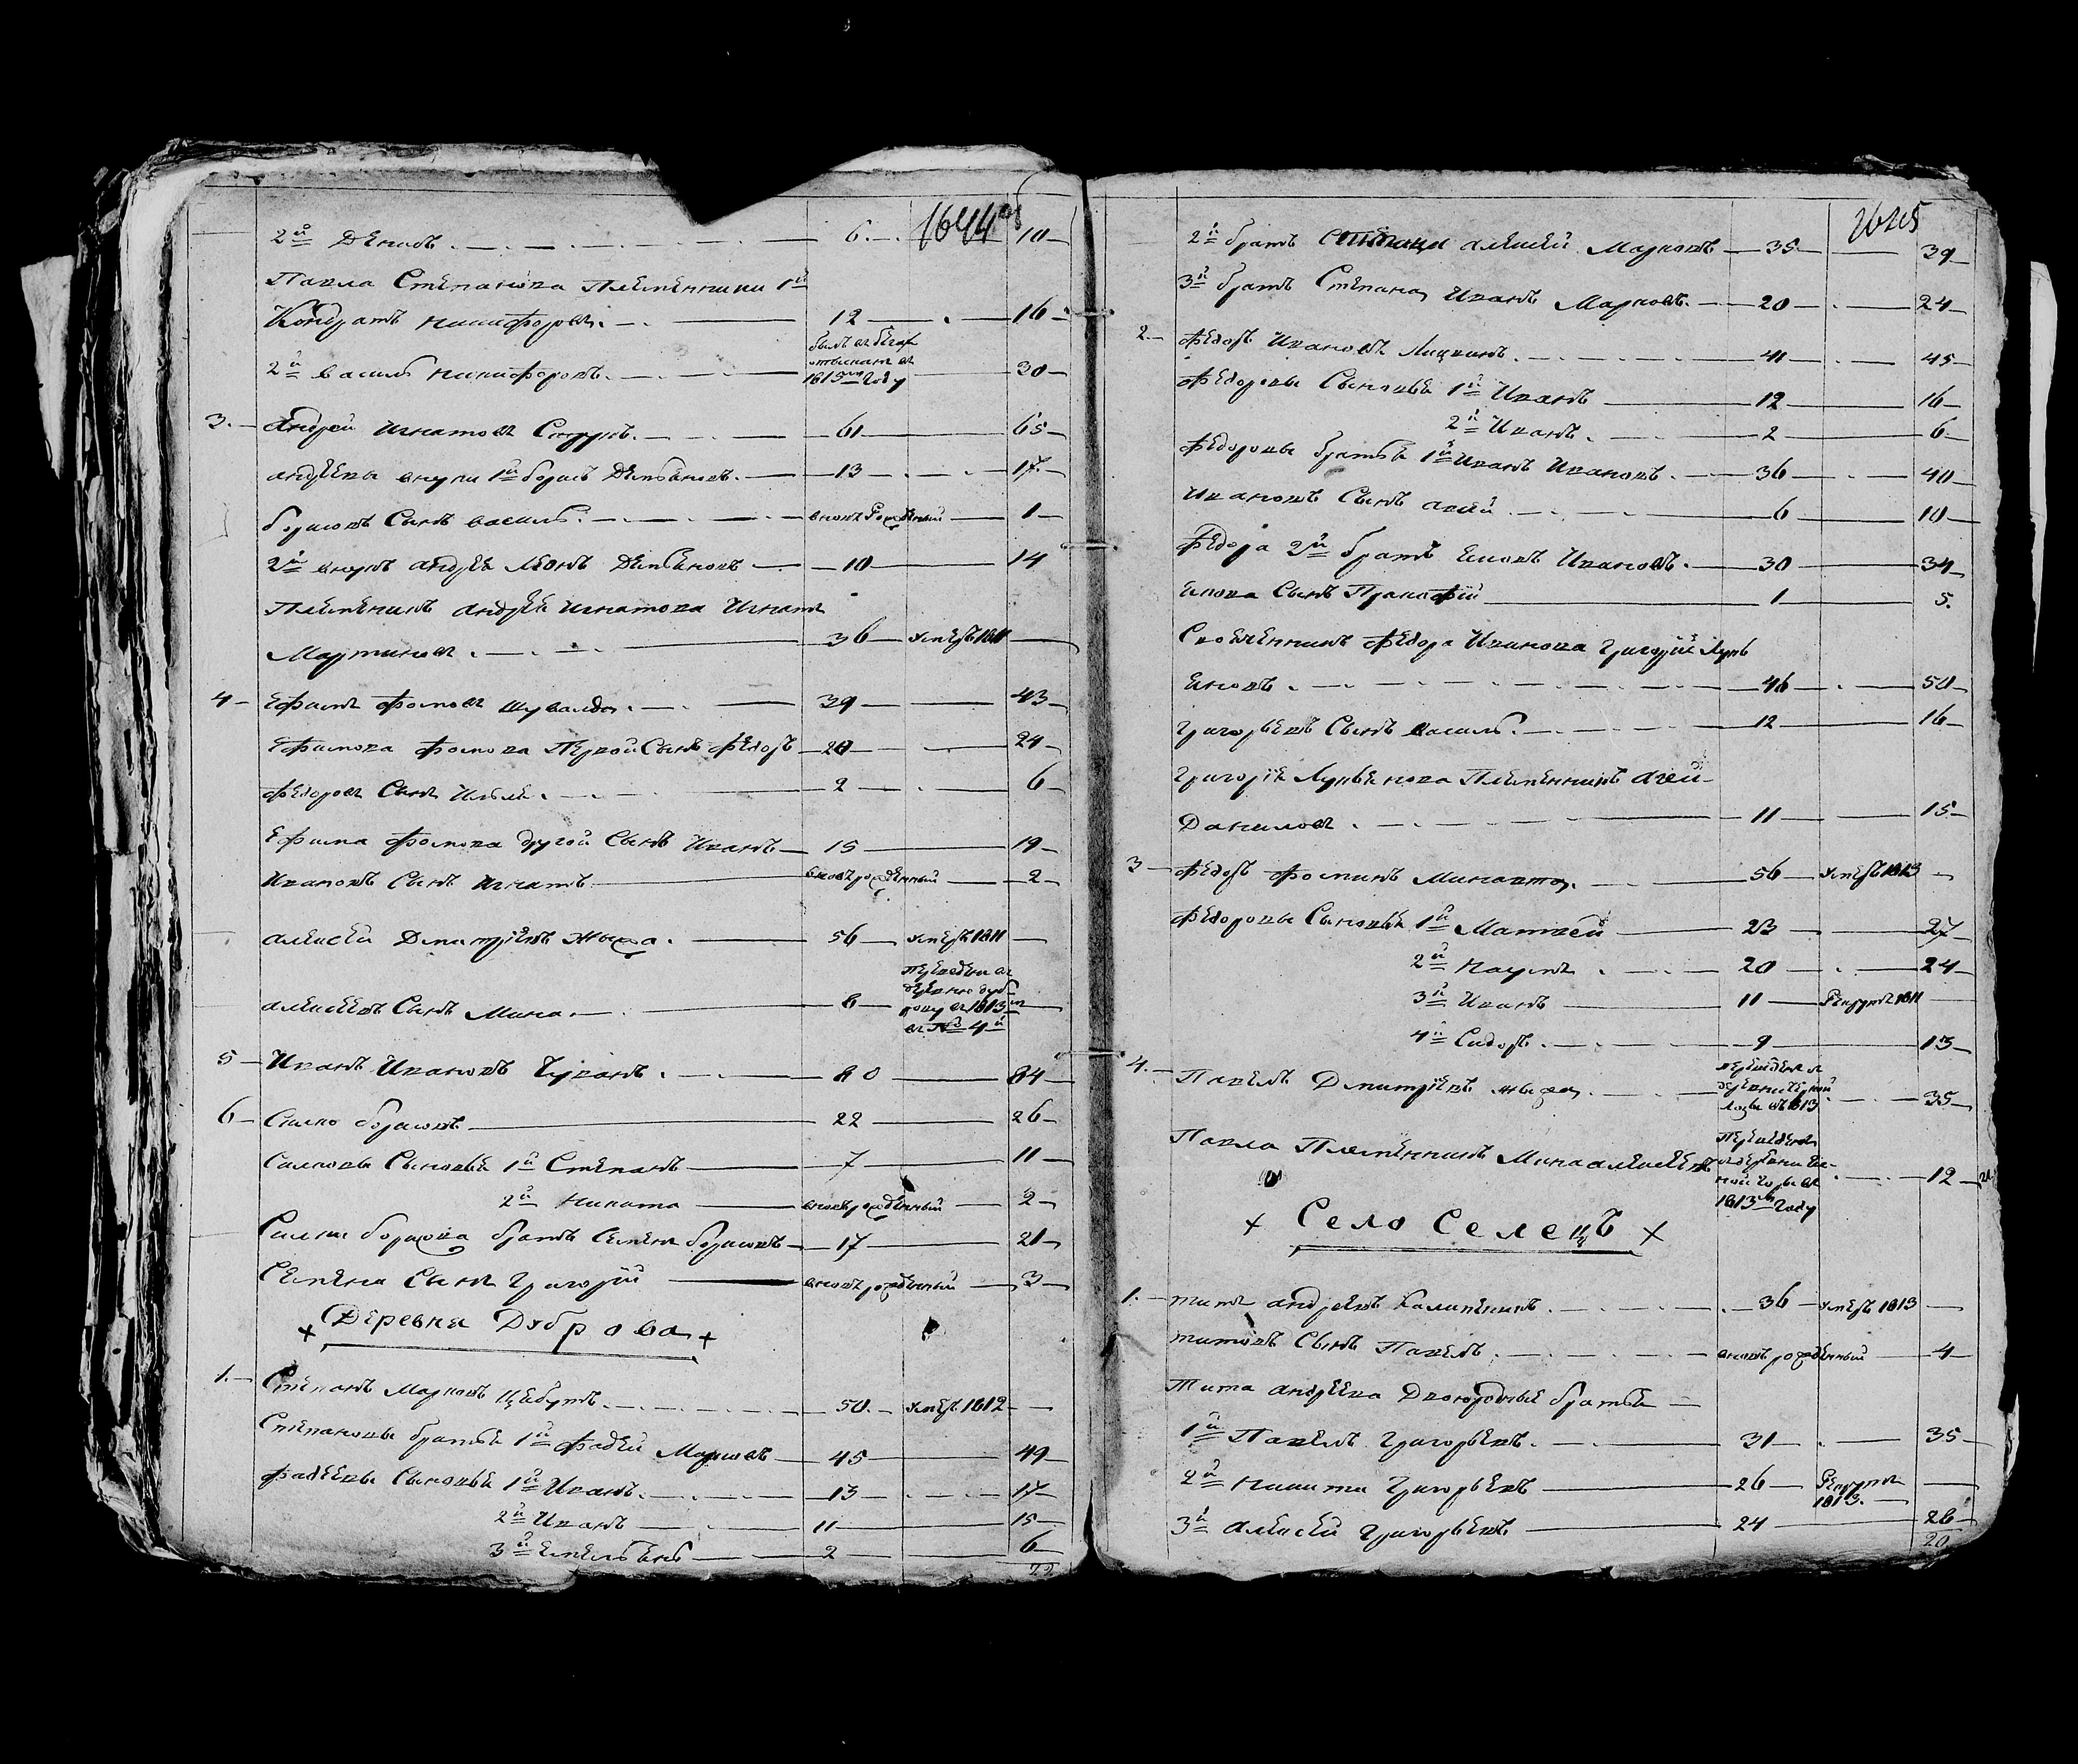 1644 об
2й Денисъ 6 10
Павла Степанова Племянники 1й
Кондратъ Никифоровъ 12 16
2й василь Никифоровъ былъ въ бегах отысканъ въ 1813м году 30
3. Андрей Игнатовъ 61 65
андреевы внуки 1й борисъ Демьяновъ 13 17
борисовъ Сынъ василь вновь рожденный 1
2й внукъ андрея Леонъ Демьяновъ 10 14
Племяникъ андрея Игнатова Игнатъ
Мартиновъ 36 умеръ 1811
4 Ефимъ Фомовъ Шувалда 39 43
Ефимова Фомова Первой Сынъ Федоръ 20 24
Федоровъ Сынъ Илья 2 6
Ефима Фомова другой Сынъ Иванъ 15 19
Ивановъ Сынъ Игнатъ вновь рожденный 2
алексей Дмитріевъ Жыжа 56 умеръ 1811
алексеевъ Сынъ Мина 8 переведенъ въ деревню дуброву въ 1813м въ № 4й
5 Иванъ Ивановъ Чуванъ 80 84
6 Силко борисовъ 22 26
Силковы Сыновья 1й Степанъ 7 11
2й Никита вновь рожденный 2
Силки борисова братъ Семенъ борисовъ 17 21
Семена Сынъ Григорій вновь рожденный 3
+ Деревня Дуброва +
1. Степанъ Марковъ 50 умеръ 1812
Степановы братья 1й Фадей Марковъ 45 49
Фадеевы Сыновья 1й Иванъ 13 17
2й Иванъ 11 15
3й Емельянъ 2 6
22
1645
2й братъ Степана алексей Марковъ 35 39
3й братъ Степана Иванъ Марковъ 20 24
2. Федоръ Ивановъ 41 45
Федоровы Сыновья 1й Иванъ 12 16
2й Иванъ 2 6
Федоровы братья 1й Иванъ Ивановъ 36 40
Ивановъ Сынъ 6 10
Федора 2й братъ Ивановъ 30 34
Сынъ Пракофій 1 5
Своячеиникъ Федора Иванова Григорій Лукь
яновъ 46 50
Григорьевъ Сынъ василь 12 16
Григорія Лукьянова Племянникъ агей
Даниловъ 11 15
3 Федоръ Фоминъ 56 умеръ 1813
Федоровы Сыновья 1й Матвей 23 27
2й Наумъ 20 24
3й Иванъ 11 Рекрутъ 1811
4й Сидоръ 9 13
4. Павелъ Дмитріевъ Жыжа переведенъ 1813 35
Павла Племянникъ Мина алексеевъ переведенъ 1813м году 12
+ Село Селецъ +
1. титъ андреевъ Калиненикъ 36 умеръ 1813
титовъ Сынъ Павелъ вновь рожденный 4
Тита андреева Двоюродные братья
1й Павелъ Григорьевъ 31 35
2й Никита Григорьевъ 26 Рекрутъ 1813
3й алексей Григорьевъ 24 28
20